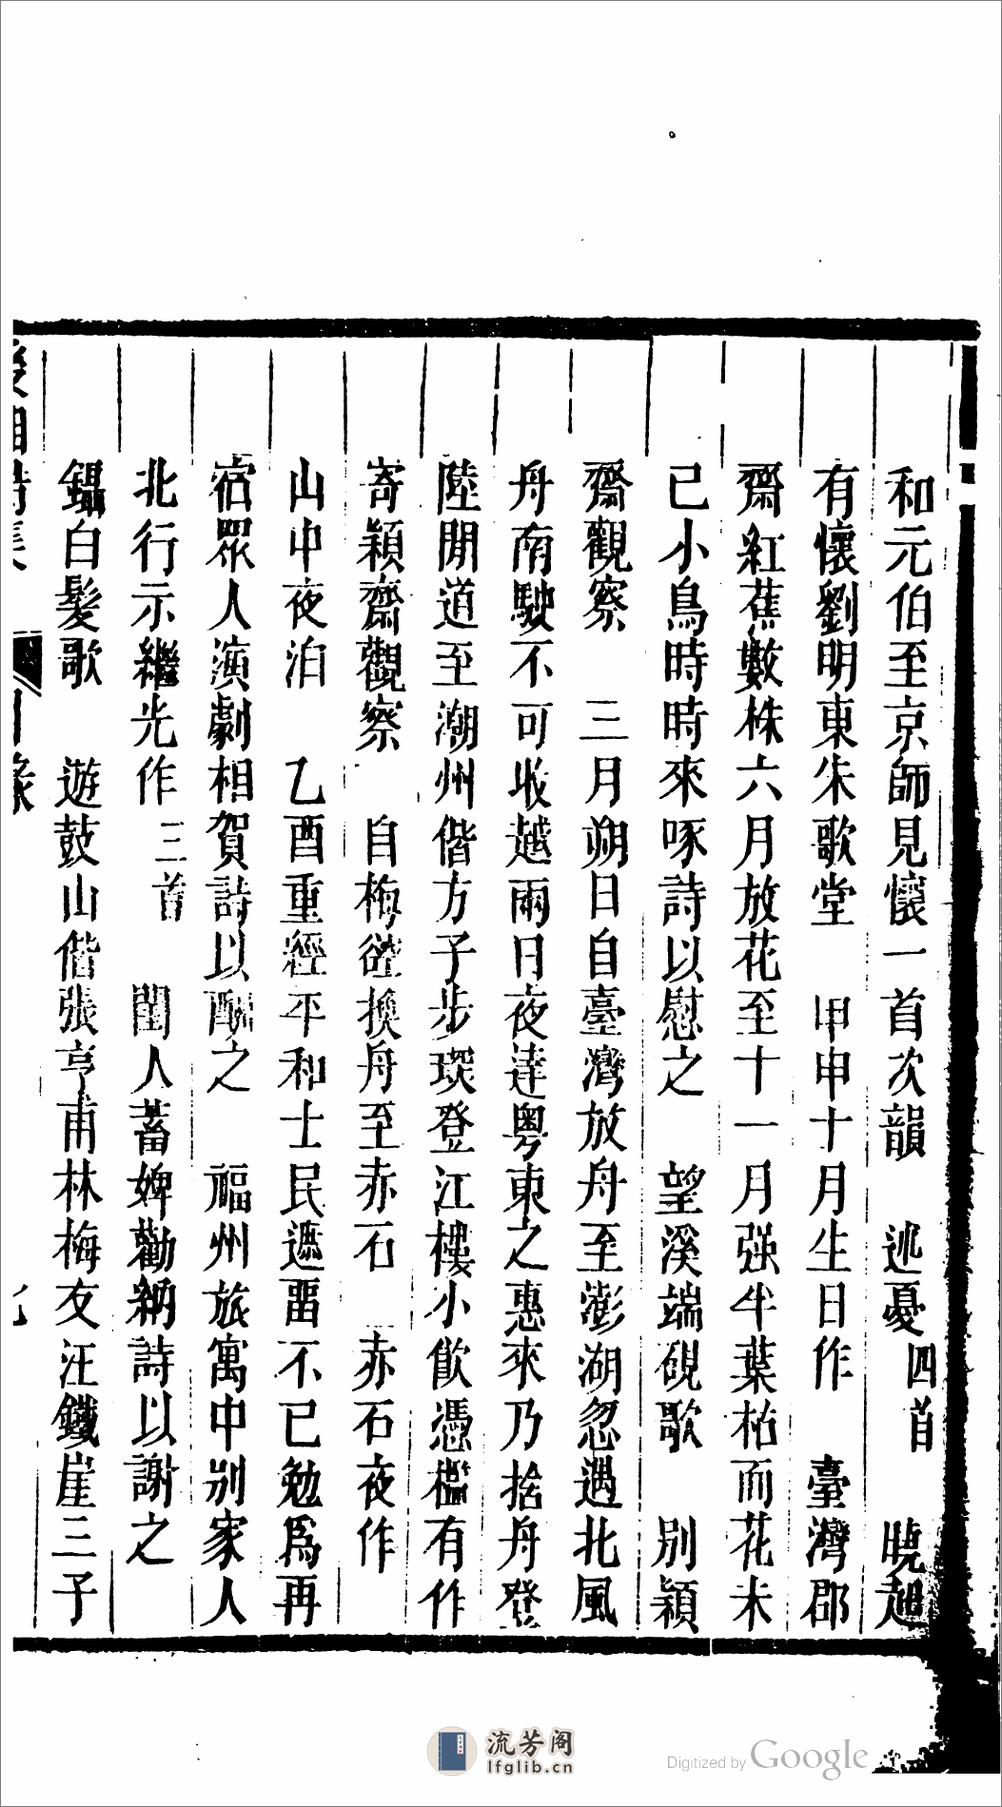 和元伯至京師見懷一首次韻　述憂四首　曉起
有懷劉明東朱歌堂　甲申十月生日作　臺灣郡
齋紅蕉數株六月放花至十一月强半葉枯而花未
已小鳥時時來啄詩以慰之　望溪端硯歌　别穎
齋觀察　三月朔日自臺灣放舟至澎湖忽遇北風
舟南駛不可收越兩日夜達粤東之惠來乃捨舟登
陸閒道至潮州偕方子步琛登江樓小飲憑檻有作
寄穎齋觀察　自梅溪換舟至赤石　赤石夜作
山中夜泊　乙酉重經平和士民遮畱不已勉爲再
宿眾人演劇相賀詩以酬之　福州旅寓中别家人
北行示繼光作三首　閨人蓄婢勸納詩以謝之
鑷白髮歌　遊鼓山偕張亨甫林梅友汪鐵崖三子
後湘詩集　目錄　九
流芳阁
lfglib.cn
Digitized by Google